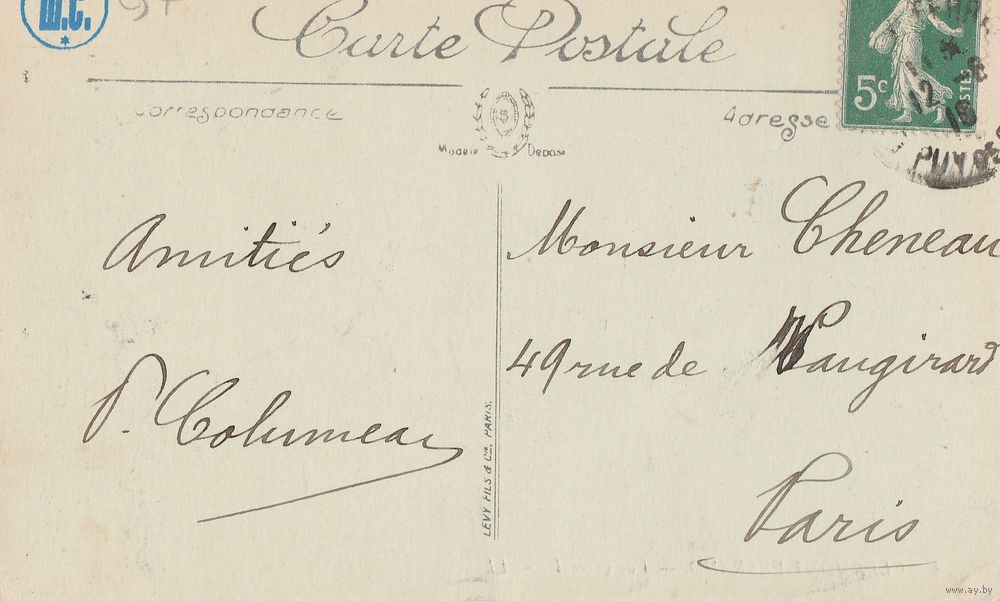 Carte Postale
Correspondance
Adresse
Modèle Déposé
5c
POSTES
12 -8
Amitiés
P. Columeau
Monsieur Cheneau
49 rue de Vaugirard
Paris
LEVY FILS & Cie, PARIS.
www.ay.by